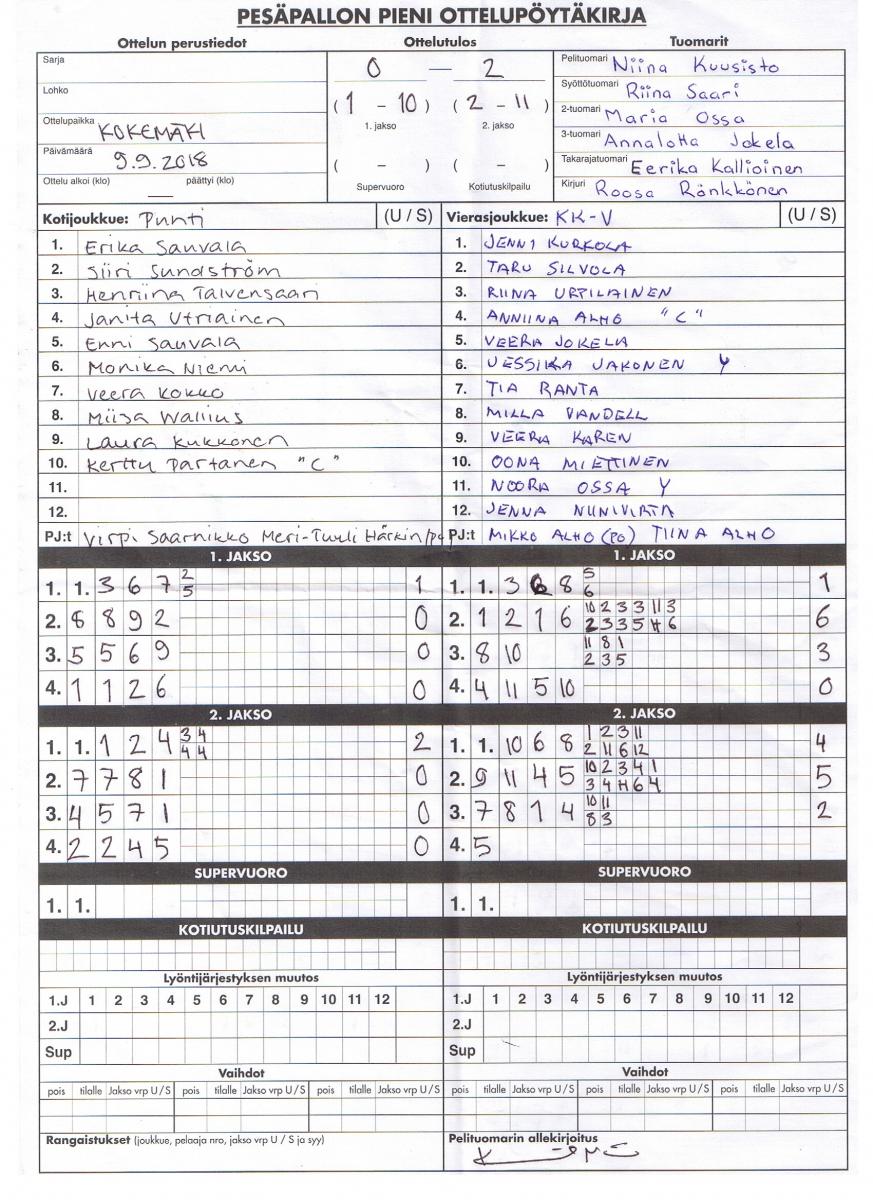 PESÄPALLON PIENI OTTELUPÖYTÄKIRJA
Ottelun perustiedot Ottelutulos Tuomarit
Sarja
Lohko
Ottelupaikka KOKEMÄKI
Päivämäärä 9.9.2018
Ottelu alkoi (klo) — päättyi (klo)
0 — 2
(1 - 10) (2 - 11)
1. jakso 2. jakso
( - ) ( - )
Supervuoro Kotiutuskilpailu
Pelituomari Niina Kuusisto
Syöttötuomari Riina Saari
2-tuomari Maria Ossa
3-tuomari Annalotta Jokela
Takarajatuomari Eerika Kallioinen
Kirjuri Roosa Rönkkönen
Kotijoukkue: Punti (U / S)
1. Erika Sauvala
2. Siiri Sundström
3. Henriina Talvensaari
4. Janita Utriainen
5. Enni Sauvala
6. Monika Niemi
7. Veera Kokko
8. Miisa Wallius
9. Laura Kukkonen
10. Kerttu Partanen "C"
11.
12.
PJ:t Virpi Saarnikko Meri-Tuuli Härkin/po
Vierasjoukkue: KK-V (U / S)
1. JENNI KURKOLA
2. TARU SILVOLA
3. RIINA URPILAINEN
4. ANNIINA ALHO "C"
5. VEERA JOKELA
6. JESSIKA JAKONEN Y
7. TIA RANTA
8. MILLA VANDELL
9. VEERA KAREN
10. OONA MIETTINEN
11. NOORA OSSA Y
12. JENNA NIINIVIRTA
PJ:t MIKKO ALHO (PO) TIINA ALHO
1. JAKSO
1. 1. 3 6 7 2 1
5
2. 8 8 9 2 0
3. 5 5 6 9 0
4. 1 1 2 6 0
2. JAKSO
1. 1. 1 2 4 3 4 2
4 4
2. 7 7 8 1 0
3. 4 5 7 1 0
4. 2 2 4 5 0
SUPERVUORO
1. 1.
KOTIUTUSKILPAILU
Lyöntijärjestyksen muutos
1.J 1 2 3 4 5 6 7 8 9 10 11 12
2.J
Sup
Vaihdot
pois tilalle Jakso vrp U / S pois tilalle Jakso vrp U / S pois tilalle Jakso vrp U / S
Rangaistukset (joukkue, pelaaja nro, jakso vrp U / S ja syy)
1. JAKSO
1. 1. 3 6 8 5 1
6
2. 1 2 1 6 10 2 3 3 11 3 6
2 3 3 5 H 6
3. 8 10 11 8 1 3
2 3 5
4. 4 11 5 10 0
2. JAKSO
1. 1. 10 6 8 1 2 3 11 4
2 11 6 12
2. 9 11 4 5 10 2 3 4 1 5
3 4 H 6 4
3. 7 8 1 4 10 11 2
8 3
4. 5
SUPERVUORO
1. 1.
KOTIUTUSKILPAILU
Lyöntijärjestyksen muutos
1.J 1 2 3 4 5 6 7 8 9 10 11 12
2.J
Sup
Vaihdot
pois tilalle Jakso vrp U / S pois tilalle Jakso vrp U / S pois tilalle Jakso vrp U / S
Pelituomarin allekirjoitus